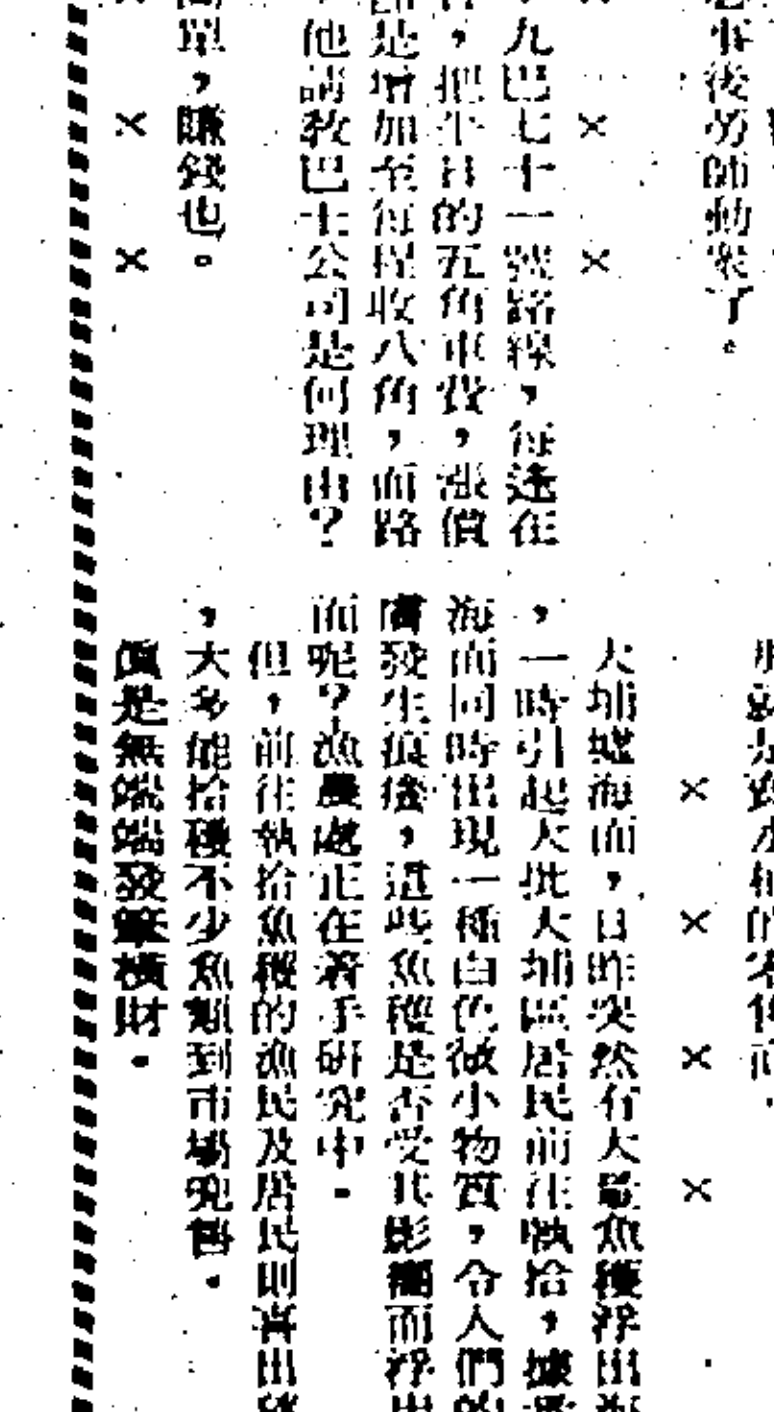 事後勞師動眾了。
× ×
，九巴七十一號路線，每逢在
，把平日的五角車費，漲價
是增加至每程收八角，而路
他請教巴士公司是何理由？
單，賺錢也。
× ×
× × × ×
大埔墟海面，日昨突然有大量魚穫浮出海
，一時引起大批大埔區居民前往執拾，據
海面同時出現一種白色微小物質，令人們的
膚發生痕癢，這些魚穫是否受其影響而浮出
面呢？漁農處正在着手研究中。
但，前往執拾魚穫的漁民及居民則喜出望
，大多能拾穫不少魚類到市場兜售。
真是無端端發筆橫財。